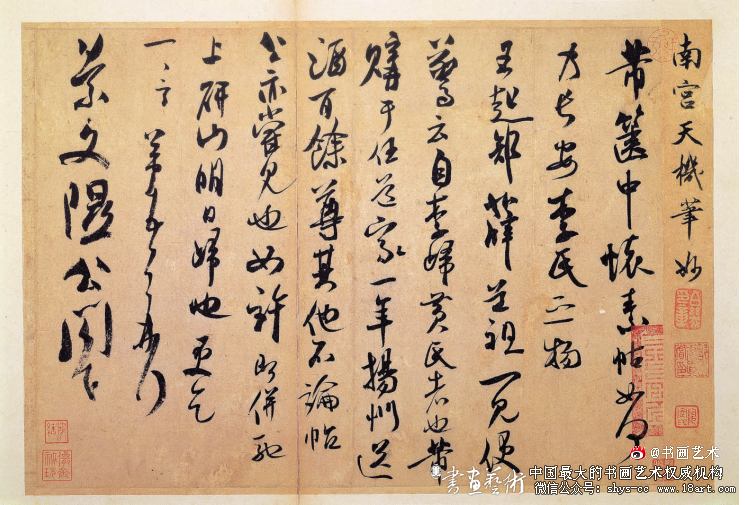 南宫天機筆妙
芾篋中懷素帖如何
乃長安李氏之物
王起部薛道祖一見便
驚云自李歸黄氏者也芾
購于任道家一年揚州送
酒百餘尊其他不論帖
公亦嘗見也如許即併馳
上研山明日歸也更乞
一言芾頓首再拜
景文隰公閣下
@书画艺术
書畫藝術
中国最大的书画艺术权威机构
微信公众号: shys-cc www.18art.com